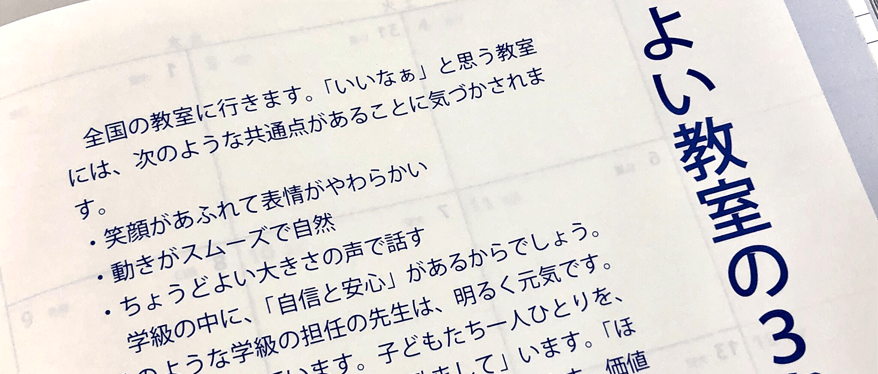 よい教室の3
全国の教室に行きます。「いいなぁ」と思う教室
には、次のような共通点があることに気づかされま
す。
・笑顔があふれて表情がやわらかい
・動きがスムーズで自然
・ちょうどよい大きさの声で話す
学級の中に、「自信と安心」があるからでしょう。
のような学級の担任の先生は、明るく元気です。
います。子どもたち一人ひとりを、
まして」います。「ほ
価値